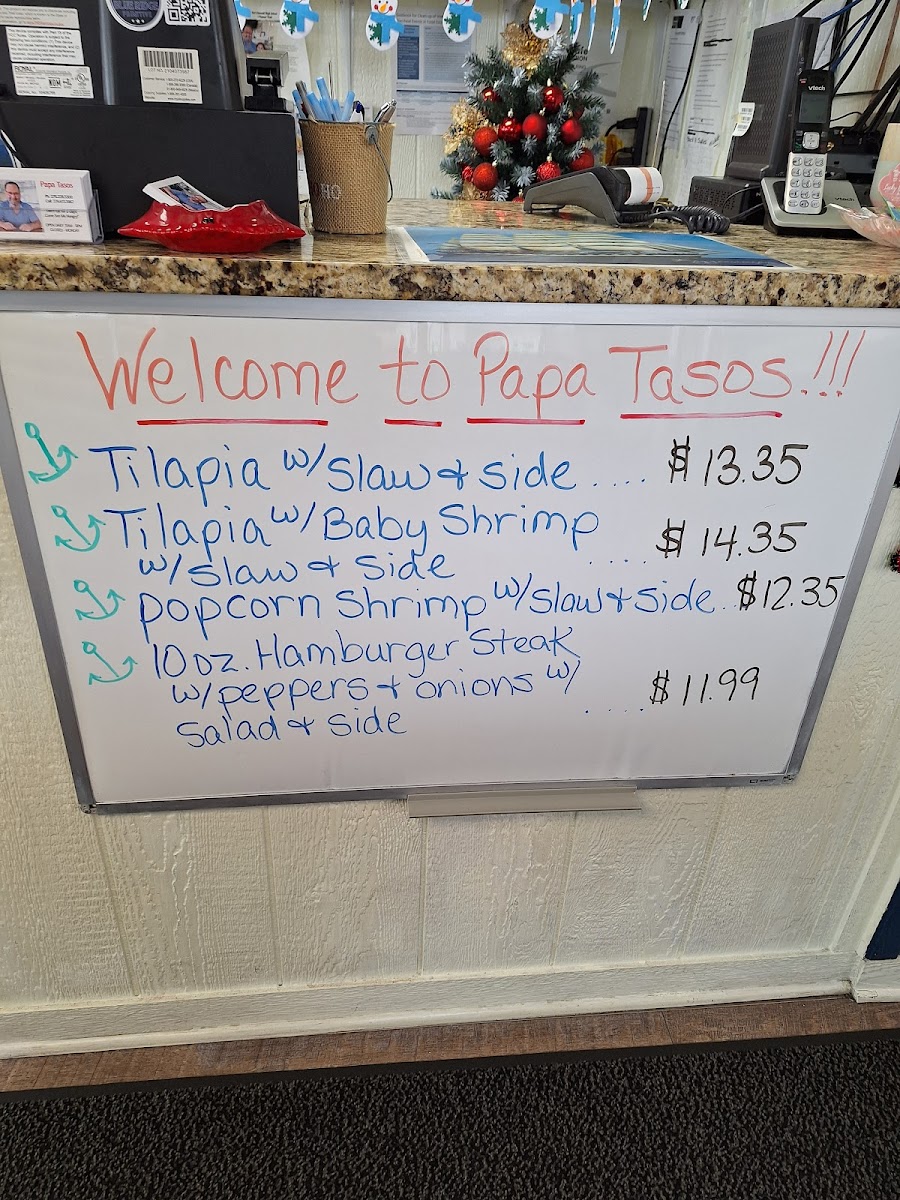 LOT NO. 2104373087
ROYAL
Papa Tasos
vtech
vtech
Welcome to Papa Tasos!!!
Tilapia w/ Slaw & Side .... $13.35
Tilapia w/ Baby Shrimp
w/ Slaw & Side .... $14.35
popcorn Shrimp w/ Slaw & Side .. $12.35
10 oz. Hamburger Steak
w/ peppers & onions w/
Salad & Side .... $11.99